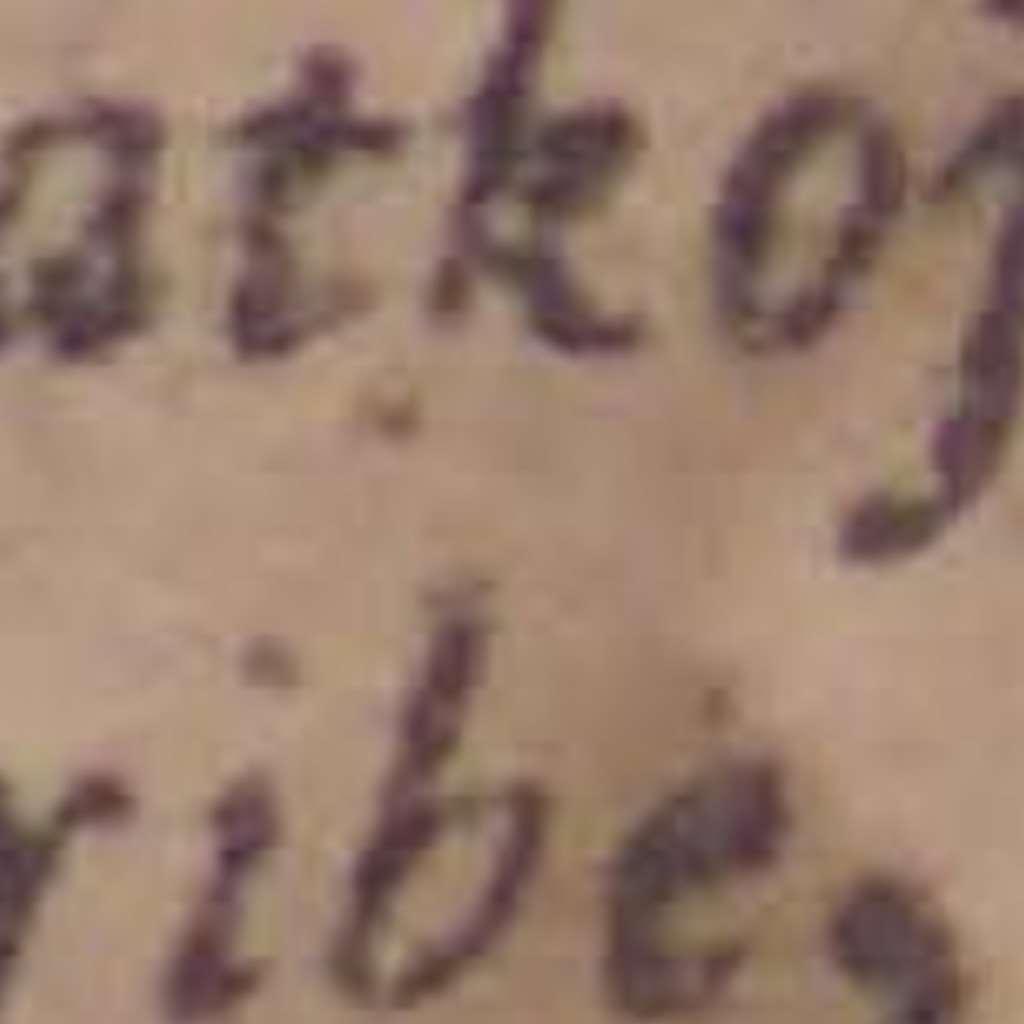 atkoj
ribe,